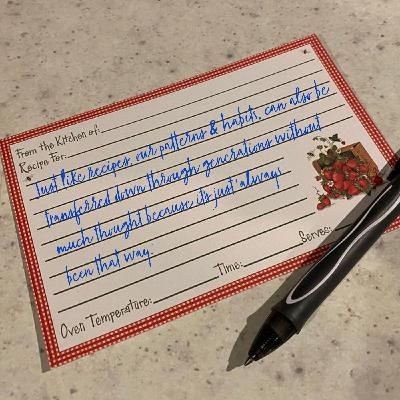 From the Kitchen of:
Recipe For:
Just like recipes our patterns & habits, can also be
transferred down through generations without
much thought because it's just 'always'
been that way.
Oven Temperature: Time: Serves: